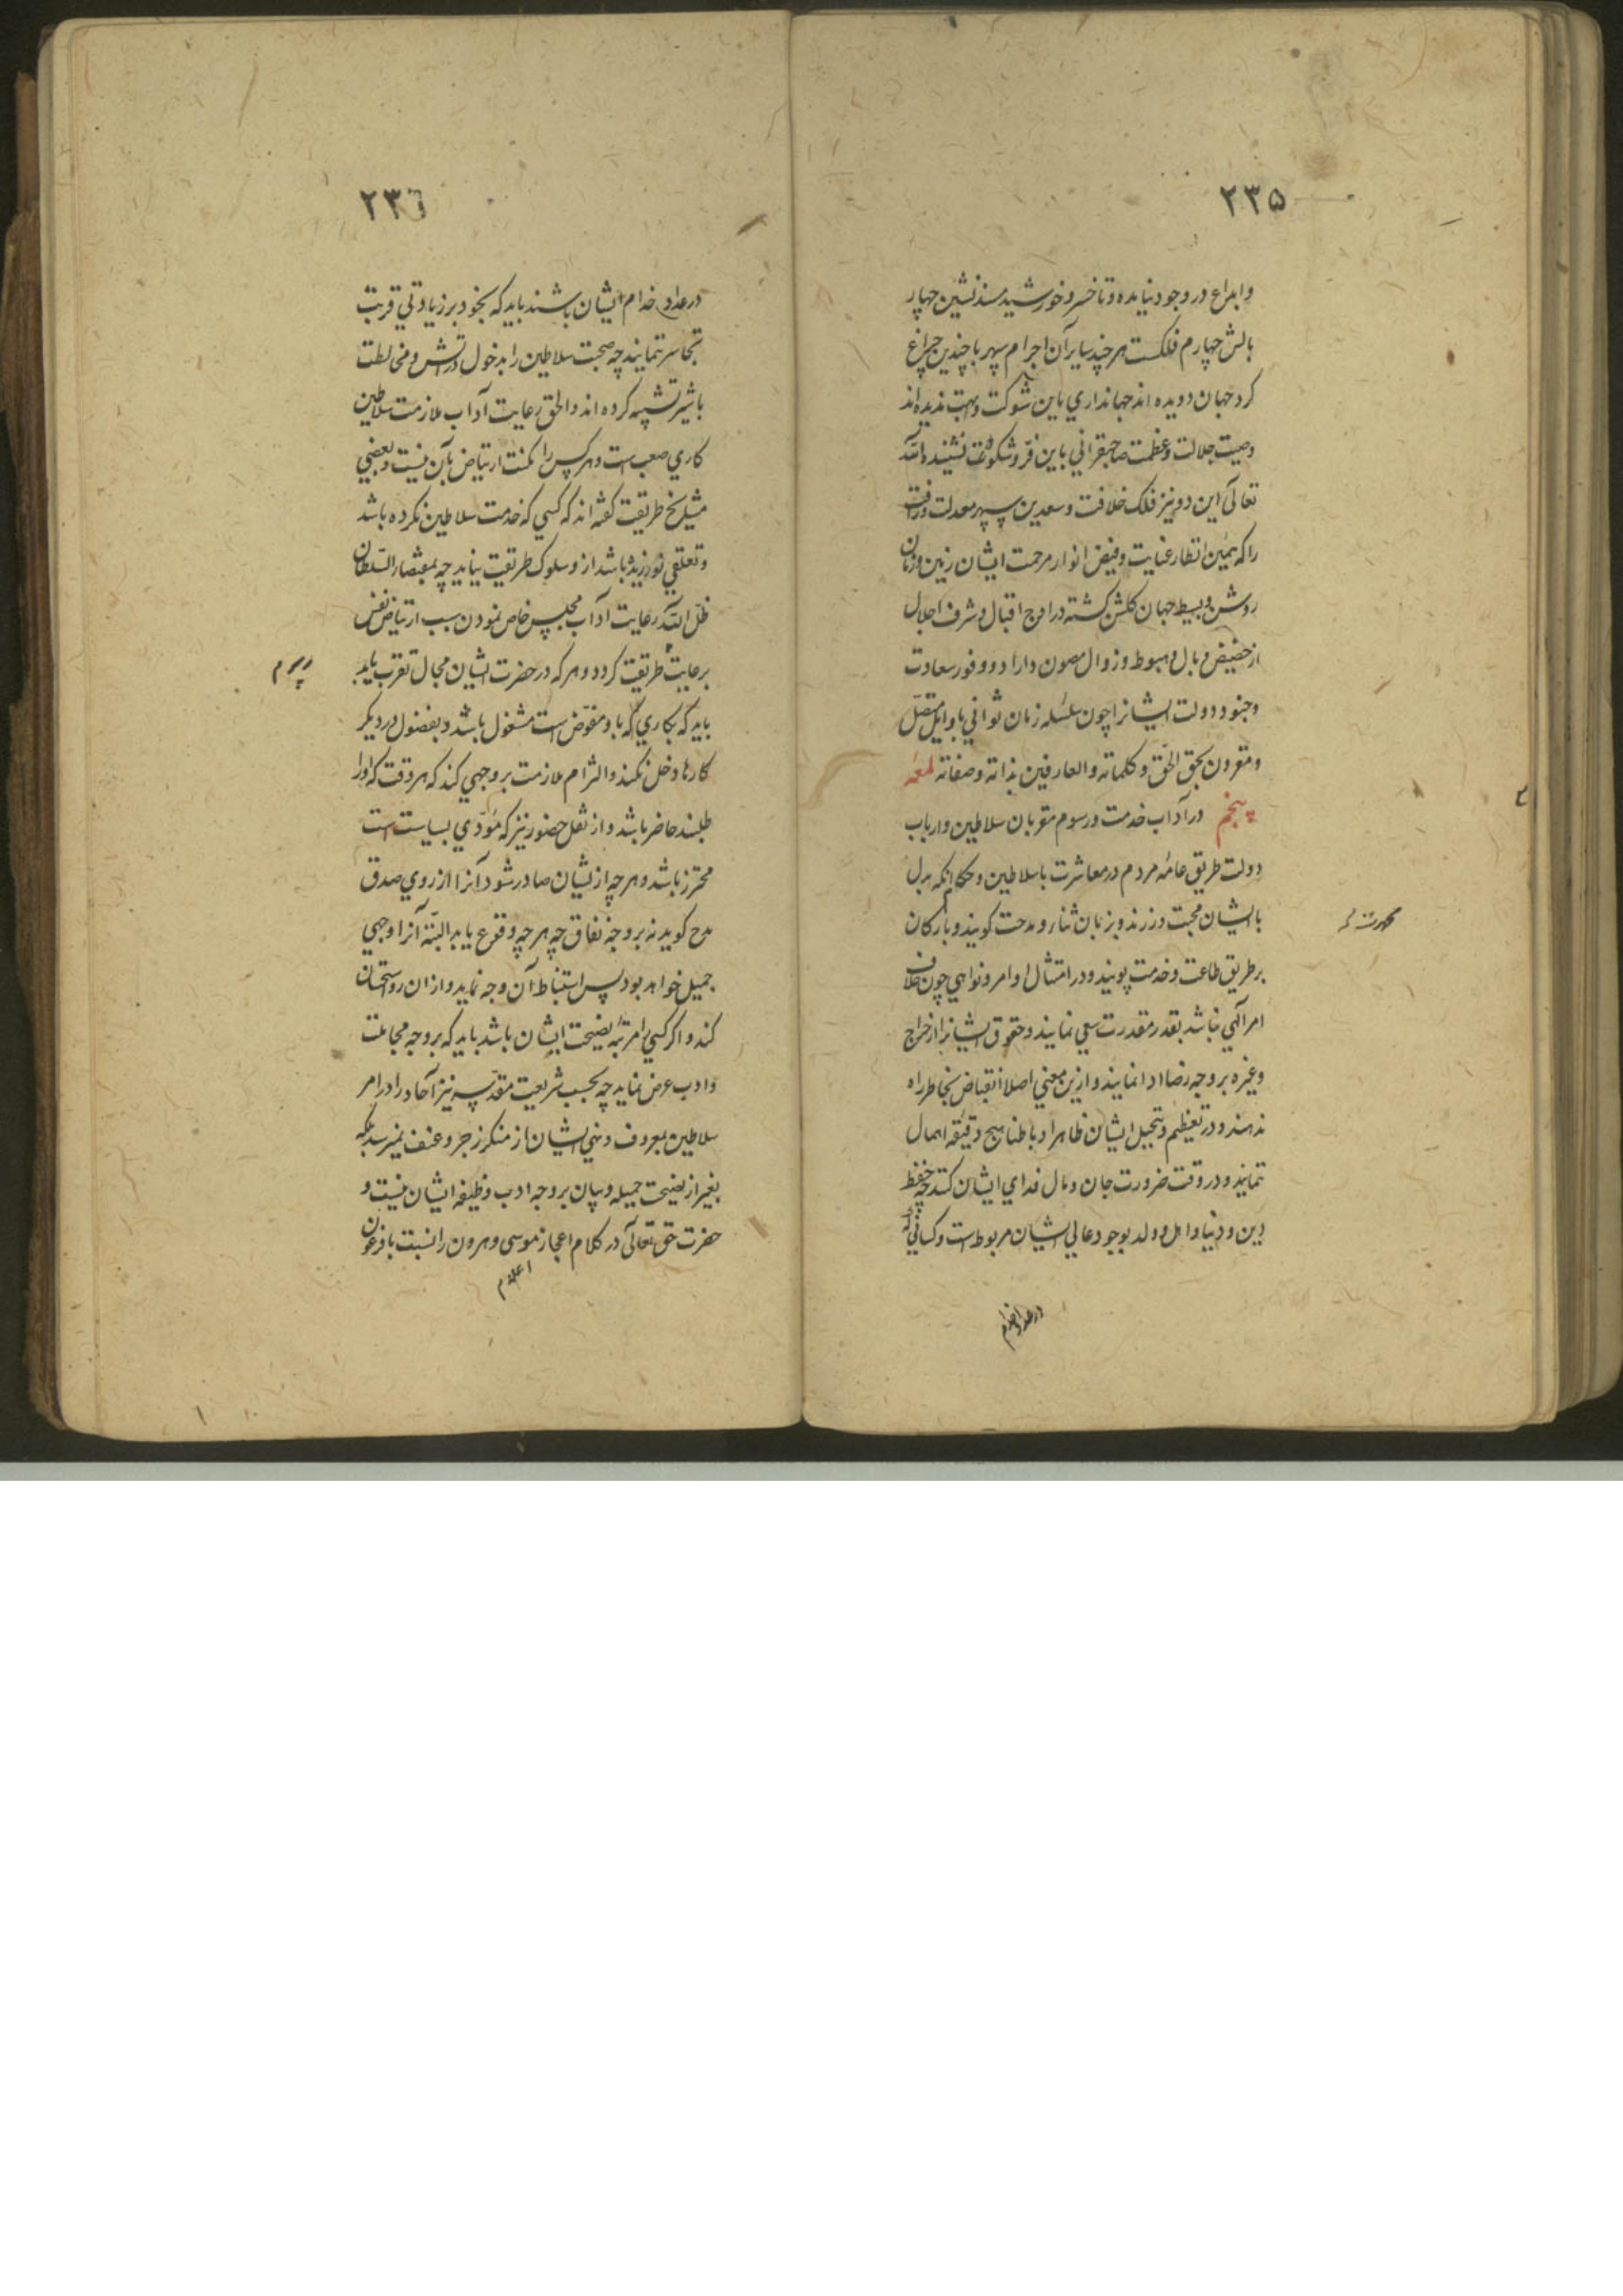 ۲۳۵
وابداع در وجود نیامده و تا خسرو خورشید مسندنشین چهار
بالش چهارم فلکست هر چند سایر آن اجرام سپهر با چندین چراغ
کرد جهان دویده اند جهانداري باین شوکت و ابهت ندیده‌اند
وصیت جلالت و عظمت صاحبقراني باین فرّ و شکوه نشنیده
تعالی این دو نیّر فلک خلافت و سعدین سپهر معدلت و رافت
را که بیمن انظار عنایت و فیض انوار مرحمت ایشان زمین و زمان
روشن و بسیط جهان کلشن کشته در اوج اقبال و شرف اجلال
از حضیض وبال و هبوط و زوال مصون داراد و وفور سعادت
و جنود دولت ایشانرا چون سلسله زمان ثواني باوایل متصل
و مقرون بحق الحق و کلماته والعارفین بذاته و صفاته لمعه
پنجم در آداب خدمت و رسوم مقربان سلاطین و ارباب
دولت طریق عامه مردم در معاشرت با سلاطین و حکام آنکه بدل
با ایشان محبت ورزند و بزبان ثناء و مدحت کویند و بارکان
بر طریق طاعت و خدمت پویند و در امتثال اوامر و نواهي چون خلاف
امر الهي نباشد بقدر مقدرت سعي نمایند و حقوق ایشانرا از خراج
و غیره بر وجه رضا ادا نمایند و ازین معني اصلا انقباض بخاطر راه
ندهند و در تعظیم و تبجیل ایشان ظاهرا و باطنا هیچ دقیقه اهمال
ننمایند و در وقت ضرورت جان و مال فداي ایشان کنند چه حفظ
دین و دنیا و اهل و ولد بوجود عالي ایشان مربوط است و کساني که
در عداد خدام
۲۳٦
در عداد خدام ایشان باشند باید که بخود بر زیادتي قربت
تجاسر ننمایند چه صحبت سلاطین را بدخول در آتش و مخالطت
با شیر تشبیه کرده اند والحق رعایت آداب ملازمت سلاطین
کاري صعب است و هر کس را مکنت ارتیاض بآن نیست و بعضي
مشایخ طریقت کفته اند که کسي که خدمت سلاطین نکرده باشد
و تعلقي نورزیده باشد از و سلوک طریقت نیاید چه بمقتضاء السّلطان
ظلّ الله رعایت آداب مجلس خاص نمودن سبب ارتیاض نفس
برعایت طریقت کردد و هر که در حضرت ایشان مجال تقرب یابد
باید که بکاري که باو مفوّض است مشغول باشد و بفضول در دیکر
کارها دخل نکند والتزام ملازمت بر وجهي کند که هر وقت که او را
طلبند حاضر باشد و از ثقل حضور نیز که مؤدّي بسیاست است
محترز باشد و هر چه از ایشان صادر شود آنرا از روي صدق
مدح کوید نه بر وجه نفاق چه هر چه وقوع یابد البتّه آنرا وجهي
جمیل خواهد بود پس استنباط آن وجه نماید و از ان رو استحسان
کند و اکر کسي را مرتبهٔ نصیحت ایشان باشد باید که بر وجه مجاملت
و ادب عرض نماید چه بحسب شریعت مقدسه نیز آحاد را در امر
سلاطین بمعروف و نهي ایشان از منکر زجر و عنف نمیرسد بلکه
بغیر از نصیحت جمیله و بیان بر وجه ادب وظیفه ایشان نیست و
حضرت حق تعالی در کلام اعجاز موسی و هرون را نسبت با فرعون